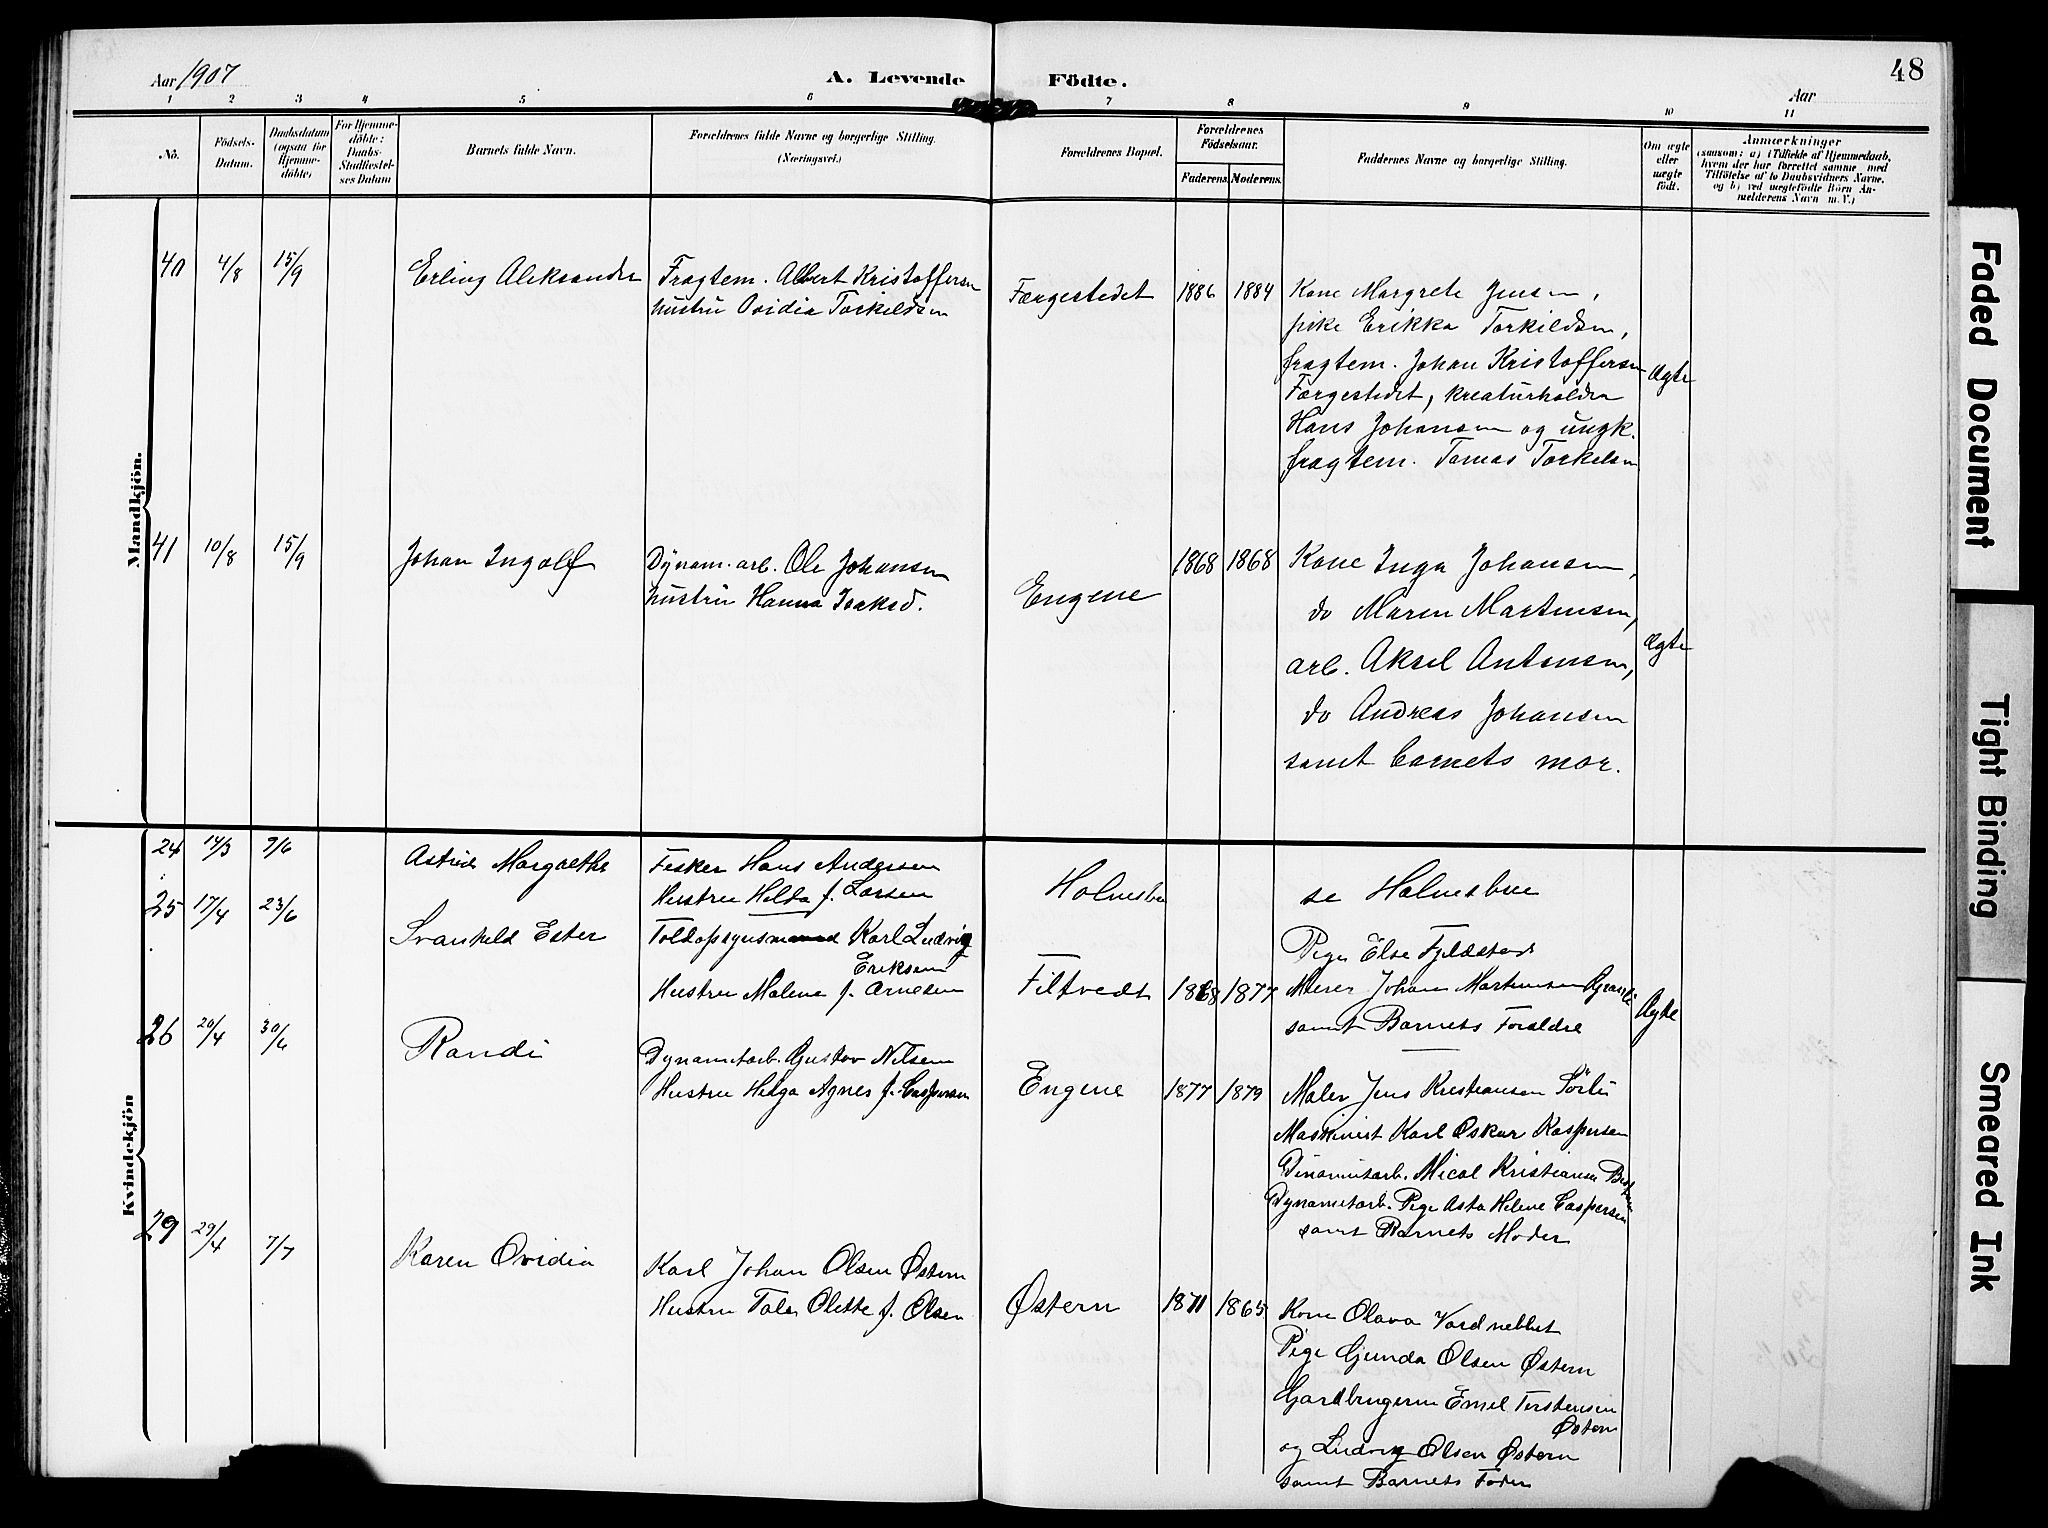 48
Aar 1907
A. Levende Födte.
Aar
1 2 3 4 5 6 7 8 9 10 11
No.
Födsels-
Datum.
Daabsdatum
(ogsaa for
Hjemme-
döbte)
For Hjemme-
döbte:
Daabs-
Stadfæstel-
ses Datum
Barnets fulde Navn.
Forældrenes fulde Navne og borgerlige Stilling.
(Næringsvei.)
Forældrenes Bopæl.
Forældrenes
Födselsaar.
Faderens. Moderens.
Faddernes Navne og borgerlige Stilling.
Om ægte
eller
uægte
födt.
Anmærkninger
(saasom: a) i Tilfælde af Hjemmedaab,
hvem der har forrettet samme med
Tilföielse af to Daabsvidners Navne.
og b) ved uægtefödte Börn An-
melderens Navn m. V.)
Mandkjön.
40 4/8 15/9
Erling Aleksander
Fragtem. Albert Kristoffersen
hustru Ovidia Torkildsen
Færgestedet
1886 1884
Kone Margrete Jensen,
pike Erikka Torkildsen,
fragtem. Johan Kristoffersen
Færgestedet, kreaturholder
Hans Johansen og ungk.
fragtem. Tomas Torkelsen
Ægte
41 10/8 15/9
Johan Ingolf
Dynam. arb. Ole Johansen
hustru Hanna Isaksd.
Engene
1868 1868
Kone Inga Johansen,
do Maren Martinsen,
arb. Aksel Antonsen,
do Andreas Johansen
samt barnets mor.
Ægte
Kvindekjön
24 14/3 9/6
Astrid Margrethe
Fisker Hans Andersen
Hustru Hilda f. Larsen
Holmsbu
se Holmsbu
25 17/4 23/6
Svanhild Ester
Toldopsynsmand Karl Ludvig
Eriksen
Hustru Malene f. Arnesen
Filtvedt
1868 1877
Pige Else Fjeldstad
Murer Johan Martinsen
samt Barnets Forældre
Ægte
26 20/4 30/6
Randi
Dynamitarb. Gustav Nilsen
Hustru Helga Agnes f. Caspersen
Engene
1877 1879
Maler Jens Kristiansen Sörli
Maskinist Karl Oskar Kaspersen
Dinamitarb. Micol Kristiansen
Dynamitarb. Pige Asta Helene Caspersen
samt Barnets Moder
29 29/4 7/7
Karen Ovidia
Karl Johan Olsen Østern
Hustru Tala Olette f. Olsen
Østern
1871 1865
Kone Olava Vardnebbet
Pige Gunda Olsen Østern
Gardbrugerne Emil Torstensen
Østern
og Ludvig Olsen Østern
samt Barnets Fader
Faded Document
Tight Binding
Smeared Ink